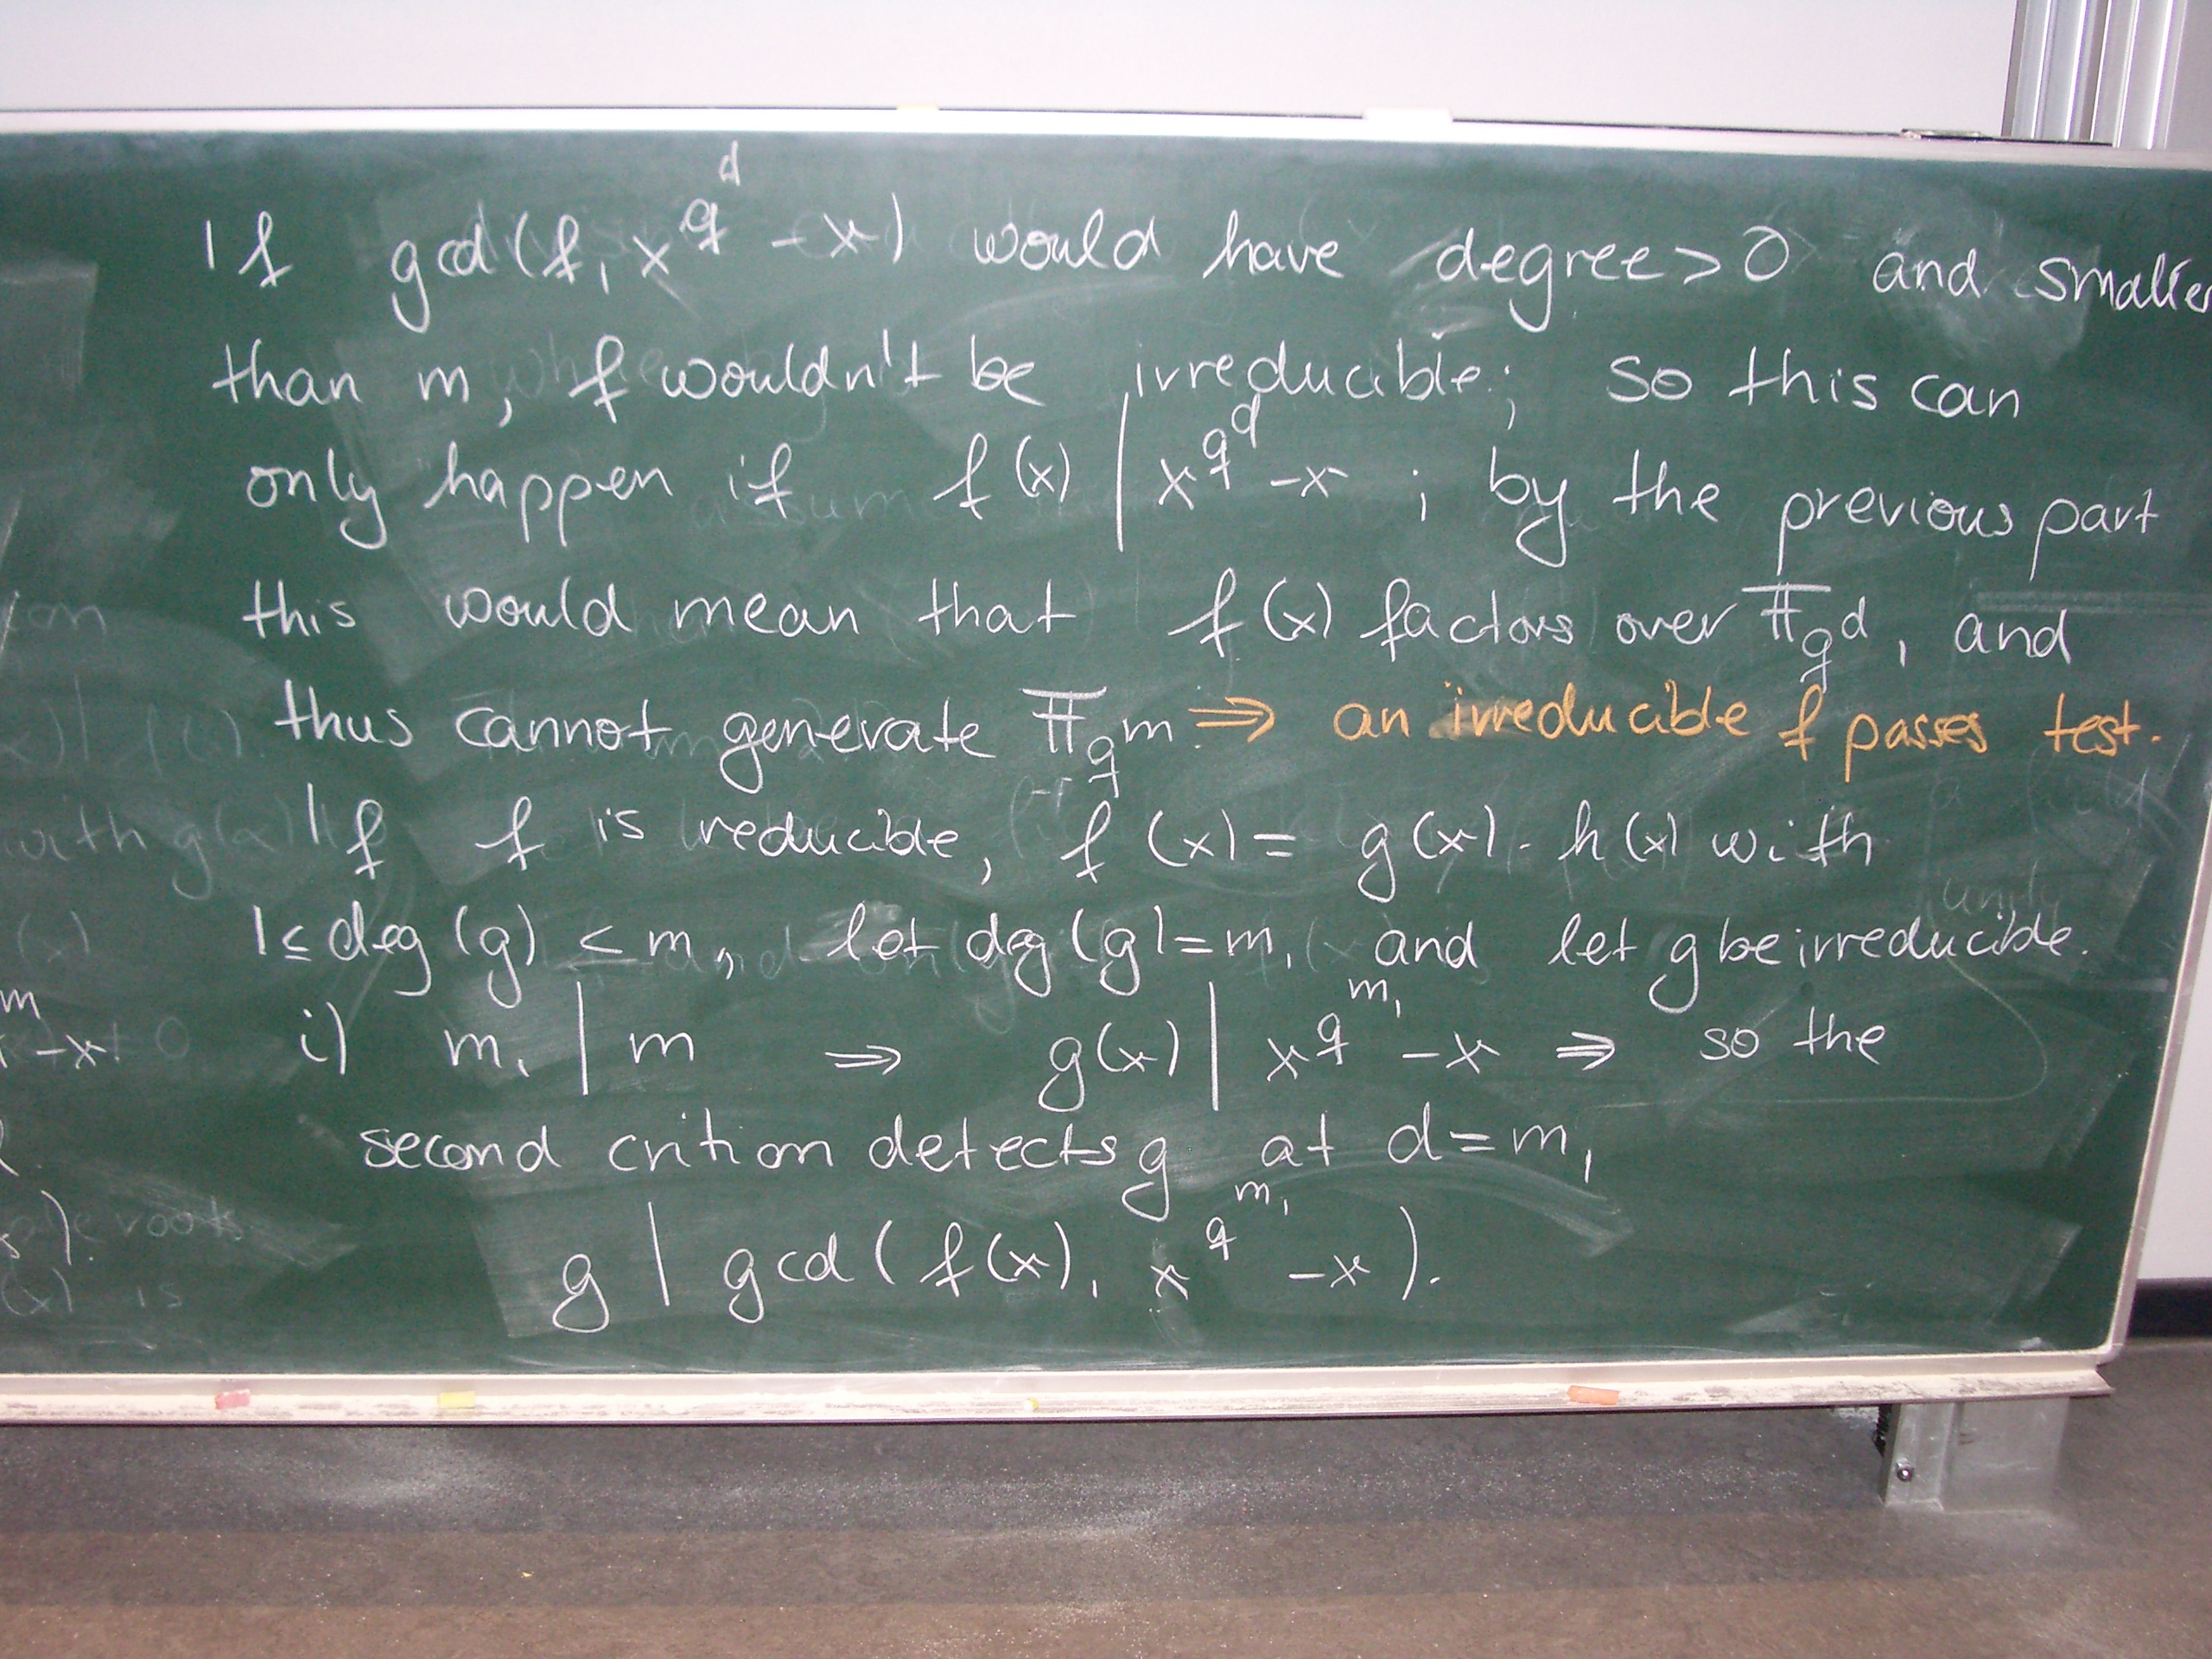 If gcd(f, x^{q^d} - x) would have degree > 0 and smaller
than m, f wouldn't be irreducible; so this can
only happen if f(x) | x^{q^d} - x ; by the previous part
this would mean that f(x) factors over 𝔽_{q^d}, and
thus cannot generate 𝔽_{q^m} ⇒ an irreducible f passes test.
If f is reducible, f(x) = g(x) · h(x) with
1 ≤ deg(g) < m, let deg(g) = m₁ and let g be irreducible.
i) m₁ | m ⇒ g(x) | x^{q^{m₁}} - x ⇒ so the
second crition detects g at d = m₁
g | gcd(f(x), x^{q^{m₁}} - x).